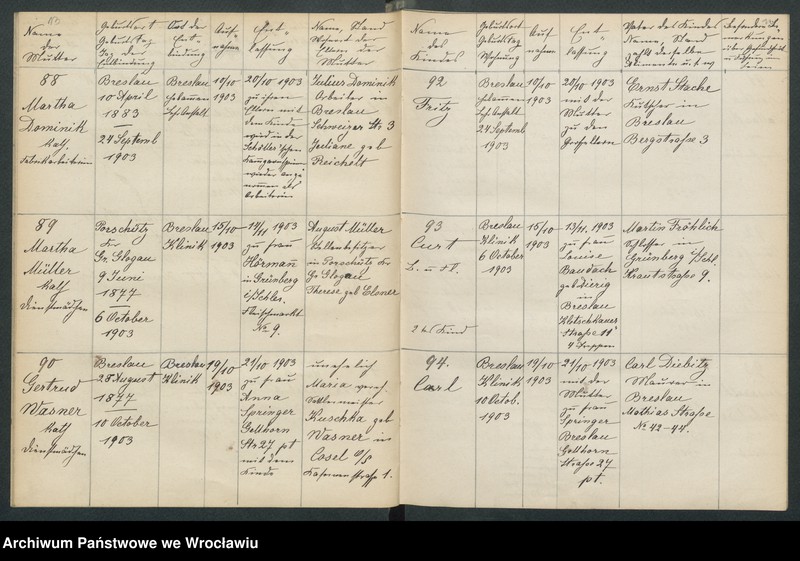 Name
der
Mutter
Geburtsort
Geburtstag
Tag der
Entbindung
Ort der
Ent-
bindung
Auf-
nahme
Ent-
lassung
Name, Stand
Wohnort der
Eltern der
Mutter
88
Martha
Dominik
kath.
Fabrikarbeiterin
Breslau
10 April
1883
24 Septemb
1903
Breslau
10/10
1903
20/10 1903
zu ihren
Eltern mit
dem Kinde
wird in der
wieder ange
nommen als
Arbeiterin
Julius Dominik
Arbeiter in
Breslau
Schweizer Str 3
Juliane geb
Reichelt
89
Martha
Müller
kath
Dienstmädchen
Porschütz
Kr
Gr. Glogau
9 Juni
1877
6 October
1903
Breslau
Klinik
15/10
1903
14/11 1903
zu Frau
Hörmann
in Grünberg
i/Schles.
Fleischmarkt
№ 9.
August Müller
Stellenbesitzer
in Porschütz Kr
Gr Glogau
Therese geb Elsner
90
Gertrud
Wasner
kath
Dienstmädchen
Breslau
28 August
1877
10 October
1903
Breslau
Klinik
19/10
1903
21/10 1903
zu Frau
Anna
Springer
Gellhorn
Str 27 pt
mit dem
Kinde
unehelich
Maria verh.
Kuschka geb
Wasner in
Cosel O/S
Kasernenstrasse 1.
Name
des
Kindes
Geburtsort
Geburtstag
Wohnung
Auf-
nahme
Ent-
lassung
Vater des Kindes
Name, Stand
92
Fritz
Breslau
24 Septemb
1903
10/10
1903
20/10 1903
mit der
Mutter
zu den
Großeltern
Ernst Stache
Kutscher in
Breslau
Bergstraße 3
93
Curt
2tes Kind
Breslau
Klinik
6 October
1903
15/10
1903
13/11 1903
zu Frau
Louise
Baudach
in
Breslau
Kletschkauer
Straße 11
4 Treppen
Martin Fröhlich
Schlosser in
Grünberg i/Schl.
Krautstraße 9.
94.
Carl
Breslau
Klinik
10 Octob.
1903
19/10
1903
21/10 1903
mit der
Mutter
zu Frau
Springer
Breslau
Gellhorn
Straße 27
pt.
Carl Diebitz
Maurer in
Breslau
Mathias Straße
№ 42-44.
Archiwum Państwowe we Wrocławiu